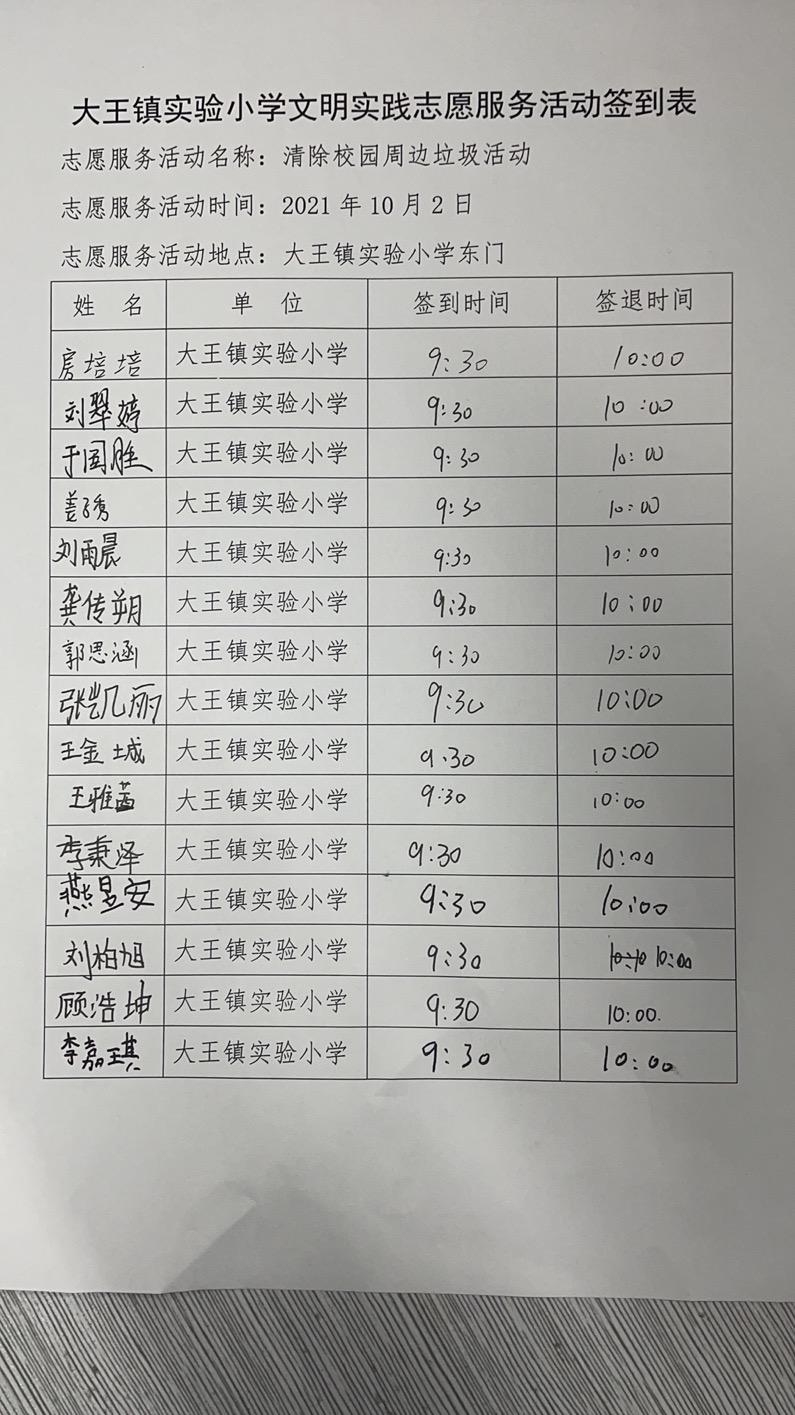 大王镇实验小学文明实践志愿服务活动签到表
志愿服务活动名称：清除校园周边垃圾活动
志愿服务活动时间：2021 年 10 月 2 日
志愿服务活动地点：大王镇实验小学东门
姓 名 单 位 签到时间 签退时间
房培培 大王镇实验小学 9:30 10:00
刘翠婷 大王镇实验小学 9:30 10:00
于国胜 大王镇实验小学 9:30 10:00
姜秀 大王镇实验小学 9:30 10:00
刘雨晨 大王镇实验小学 9:30 10:00
龚传朔 大王镇实验小学 9:30 10:00
郭思涵 大王镇实验小学 9:30 10:00
张凯丽 大王镇实验小学 9:30 10:00
王金城 大王镇实验小学 9.30 10:00
王雅 大王镇实验小学 9:30 10:00
李秉泽 大王镇实验小学 9:30 10:00
燕昱安 大王镇实验小学 9:30 10:00
刘柏旭 大王镇实验小学 9:30 10:00
顾浩坤 大王镇实验小学 9:30 10:00.
李嘉琪 大王镇实验小学 9:30 10:00